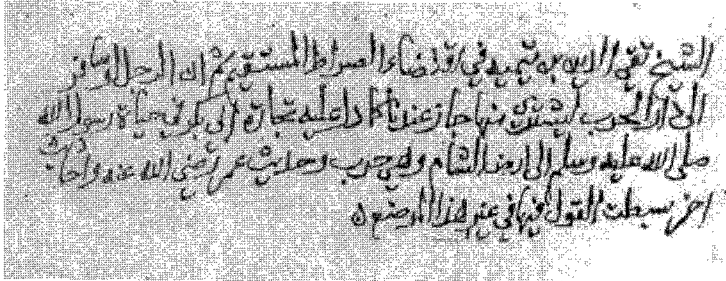 الشيخ تقي الدين بن تيمية في اقتضاء الصراط المستقيم ثم ان الرجل لو سافر
الى دار الحرب ليشتري منها جاز عندنا كما دل عليه تجارة ابي بكر في حياة رسول الله
صلى الله عليه وسلم الى ارض الشام وهي حرب وحديث عمر رضي الله عنه واحاديث
اخر بسطت القول فيها في غير هذا الموضع ه